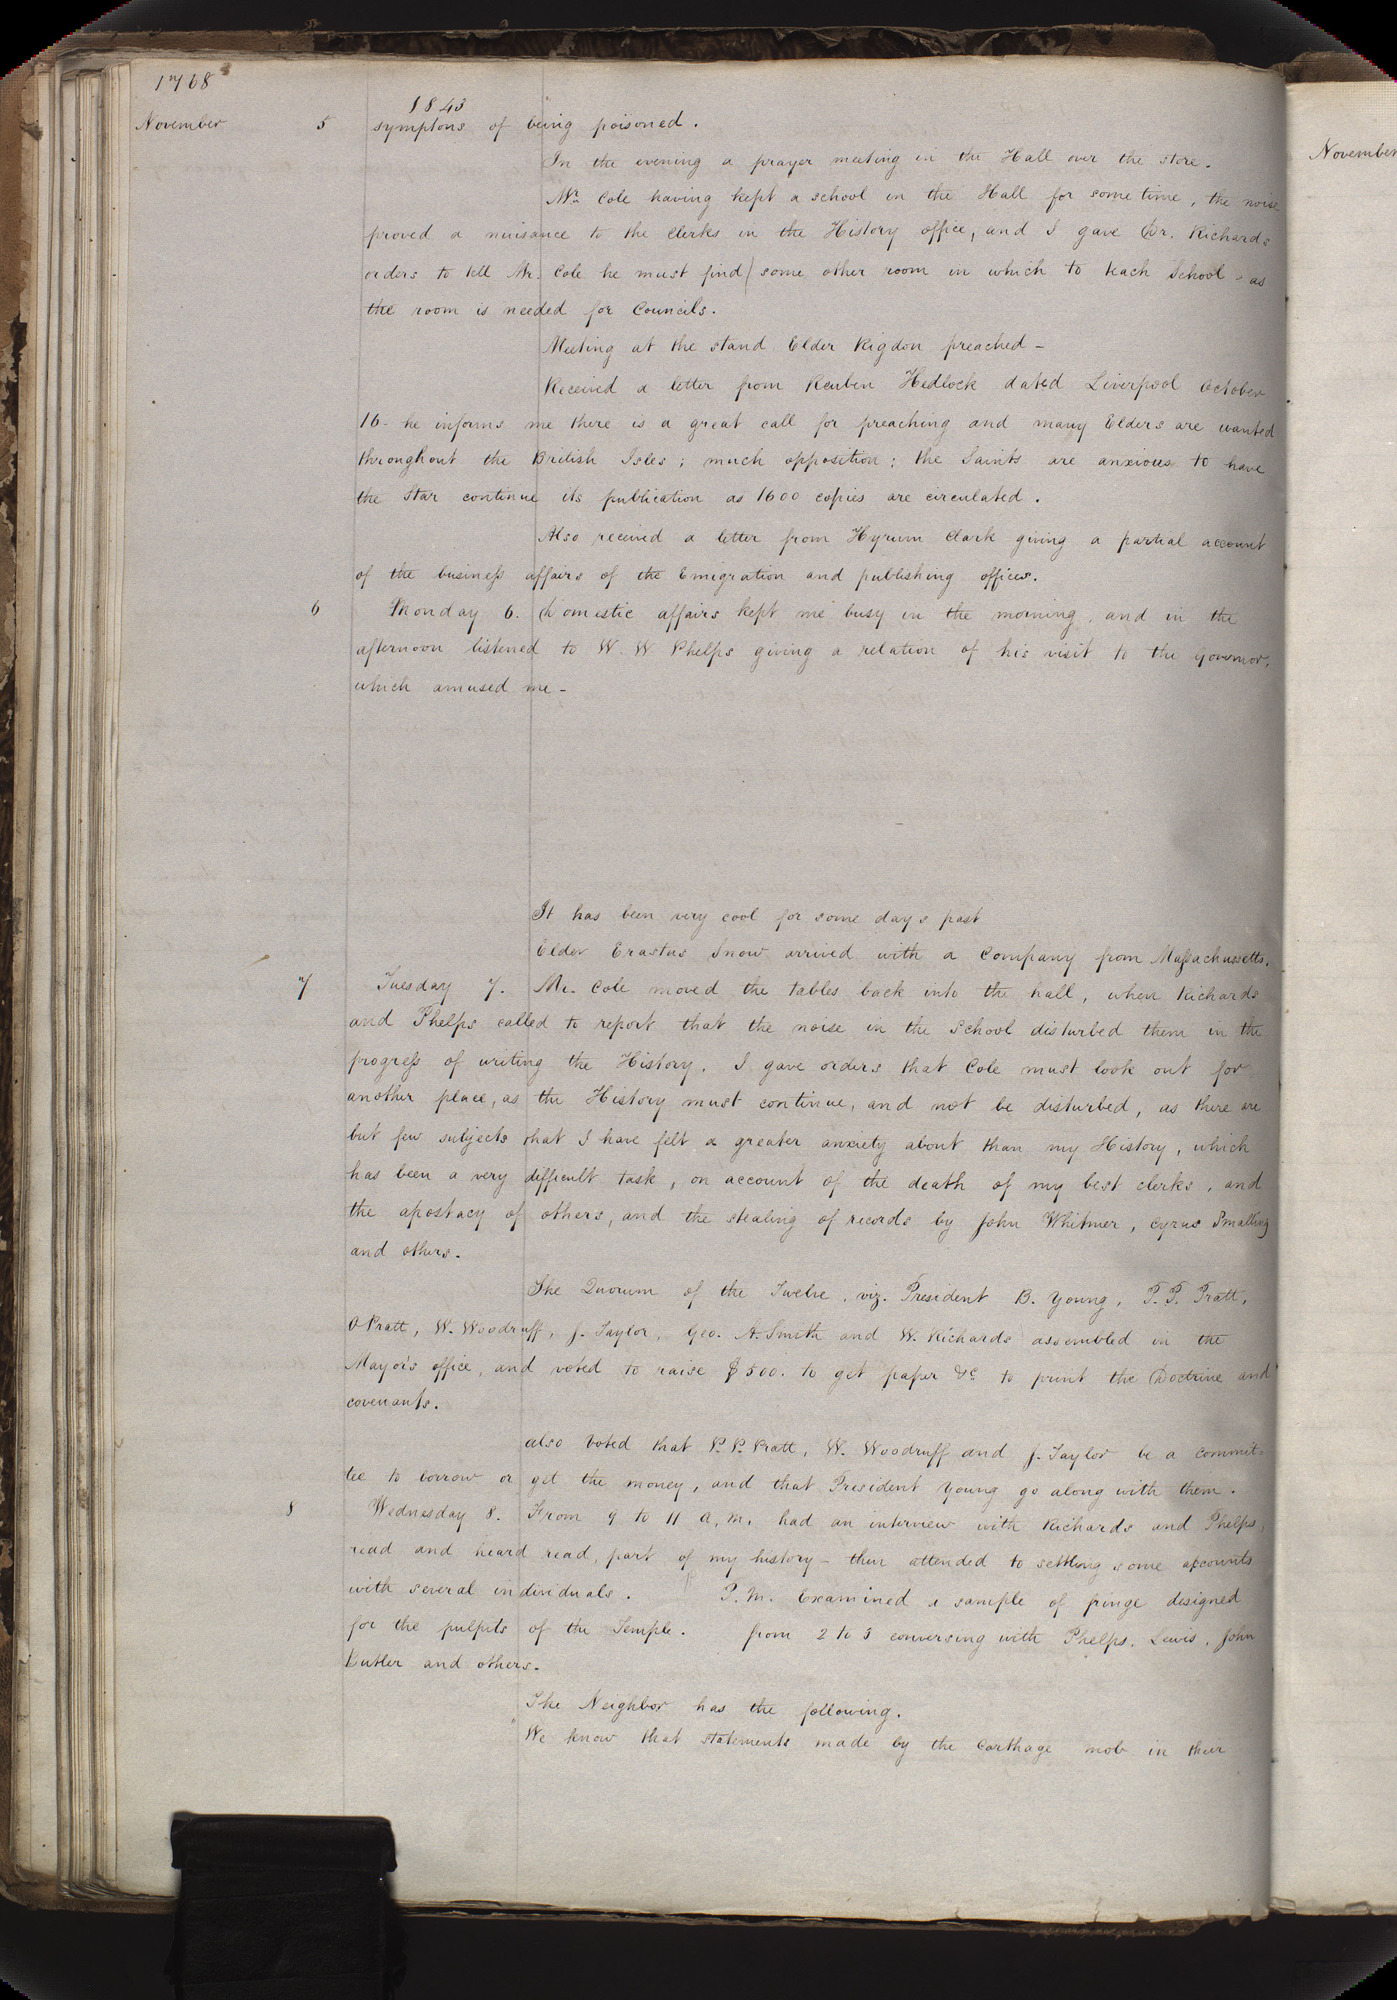 1768
1843
November 5 symptons of being poisoned.
In the evening a prayer meeting in the Hall over the store.
Mr. Cole having kept a school in the Hall for some time, the noise
proved a nuisance to the Clerks in the History office, and I gave Dr. Richards
orders to tell Mr. Cole he must find some other room in which to teach School, as
the room is needed for Councils.
Meeting at the stand Elder Rigdon preached -
Received a letter from Reuben Hedlock dated Liverpool October
16- he informs me there is a great call for preaching and many Elders are wanted
throughout the British Isles; much opposition; the Saints are anxious to have
the Star continue its publication as 1600 copies are circulated.
Also received a letter from Hyrum Clark giving a partial account
of the business affairs of the Emigration and publishing offices.
6 Monday 6. Domestic affairs kept me busy in the morning, and in the
afternoon listened to W. W. Phelps giving a relation of his visit to the Governor,
which amused me -
It has been very cool for some days past
Elder Erastus Snow arrived with a company from Massachussetts.
7 Tuesday 7. Mr. Cole moved the tables back into the hall, when Richards
and Phelps called to report that the noise in the School disturbed them in the
progress of writing the History. I gave orders that Cole must look out for
another place, as the History must continue, and not be disturbed, as there are
but few subjects that I have felt a greater anxiety about than my History, which
has been a very difficult task, on account of the death of my best clerks, and
the apostacy of others, and the stealing of records by John Whitmer, Cyrus Smalling
and others.
The Quorum of the Twelve, viz. President B. Young, P. P. Pratt,
O Pratt, W. Woodruff, J. Taylor, Geo. A. Smith and W. Richards assembled in the
Mayor's office, and voted to raise $500. to get paper &c to print the Doctrine and
covenants.
also voted that P. P. Pratt, W. Woodruff and J. Taylor be a commit=
tee to borrow or get the money, and that President Young go along with them.
8 Wednesday 8. From 9 to 11 a.m. had an interview with Richards and Phelps,
read and heard read, part of my history - then attended to settling some accounts
with several individuals. P.M. Examined a sample of fringe designed
for the pulpits of the Temple. from 2 to 3 conversing with Phelps, Lewis, John
Butler and others.
The Neighbor has the following.
"We know that statements made by the Carthage mob in their
November